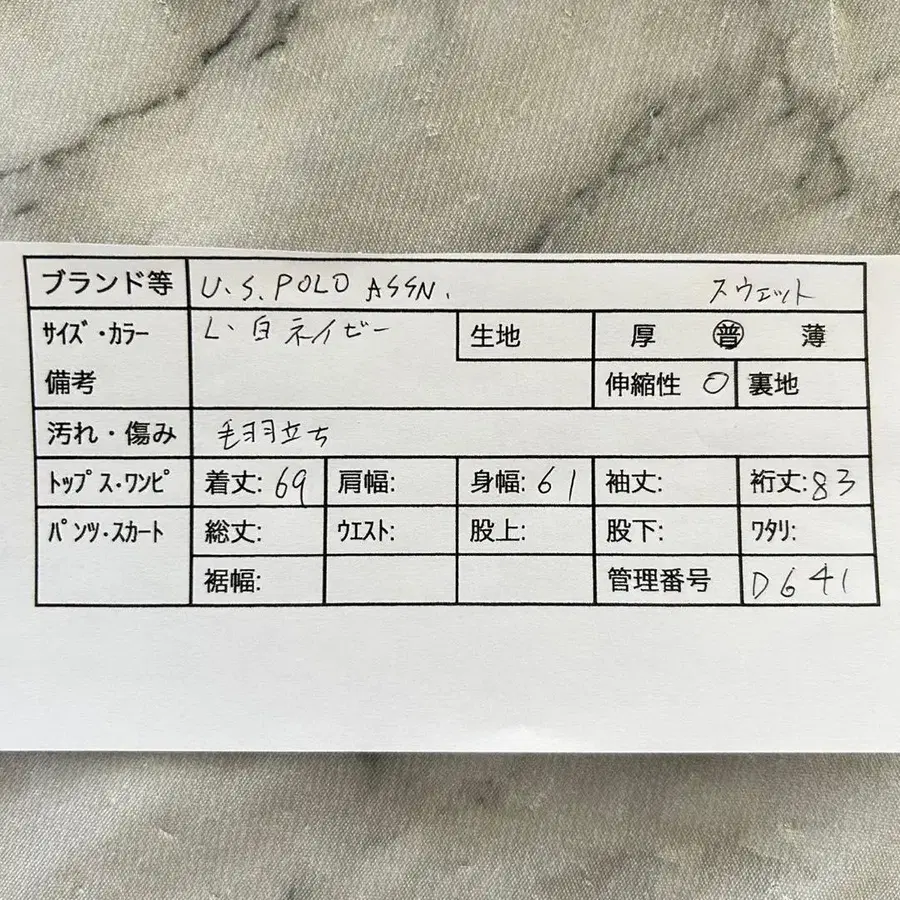 ブランド等 U.S. POLO ASSN. スウェット
サイズ・カラー L・白ネイビー 生地 厚 普 薄
備考 伸縮性 〇 裏地
汚れ・傷み 毛羽立ち
トップス・ワンピ 着丈: 69 肩幅: 身幅: 61 袖丈: 裄丈: 83
パンツ・スカート 総丈: ウエスト: 股上: 股下: ワタリ:
裾幅: 管理番号 D641